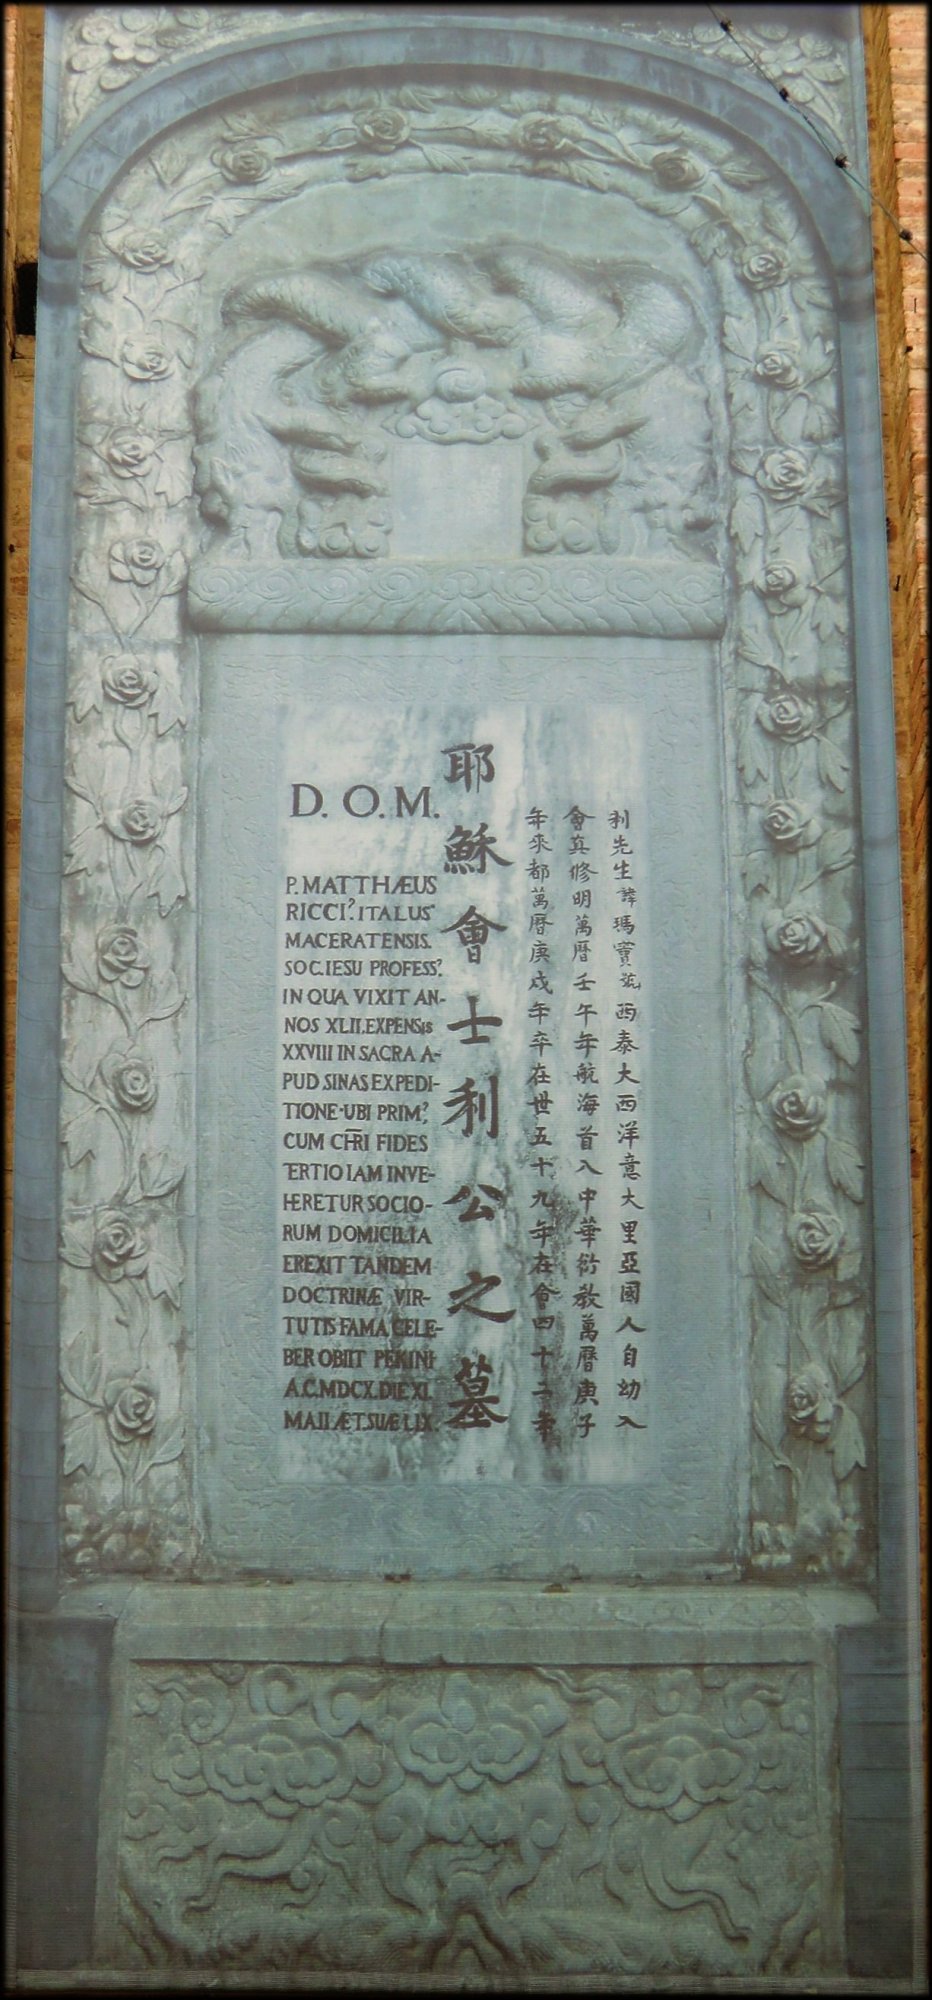 D. O. M.
P. MATTHÆUS
RICCI? ITALUS
MACERATENSIS.
SOC.IESU PROFESS?
IN QUA VIXIT AN-
NOS XLII.EXPENSIS
XXVIII IN SACRA A-
PUD SINAS EXPEDI-
TIONE·UBI PRIM?
CUM CHRI FIDES
TERTIO IAM INVE-
HERETUR SOCIO-
RUM DOMICILIA
EREXIT TANDEM
DOCTRINÆ VIR-
TUTIS FAMA CELE-
BER OBIIT PEKINI
A.C.MDCX.DIE XI.
MAII ÆT.SUÆ LIX.
耶穌會士利公之墓
利先生諱瑪竇號西泰大西洋意大里亞國人自幼入
會真修明萬曆壬午年航海首入中華衍教萬曆庚子
年來都萬曆庚戌年卒在世五十九年在會四十二年